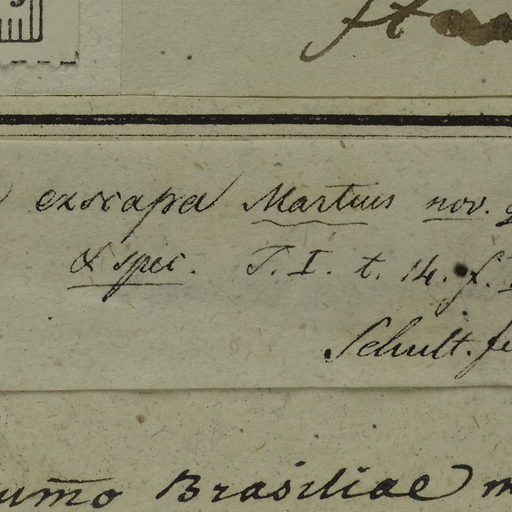 exscapa Martius nov. g
& spec. T. I. t. 14. f.
Schult. fi
Brasiliae m